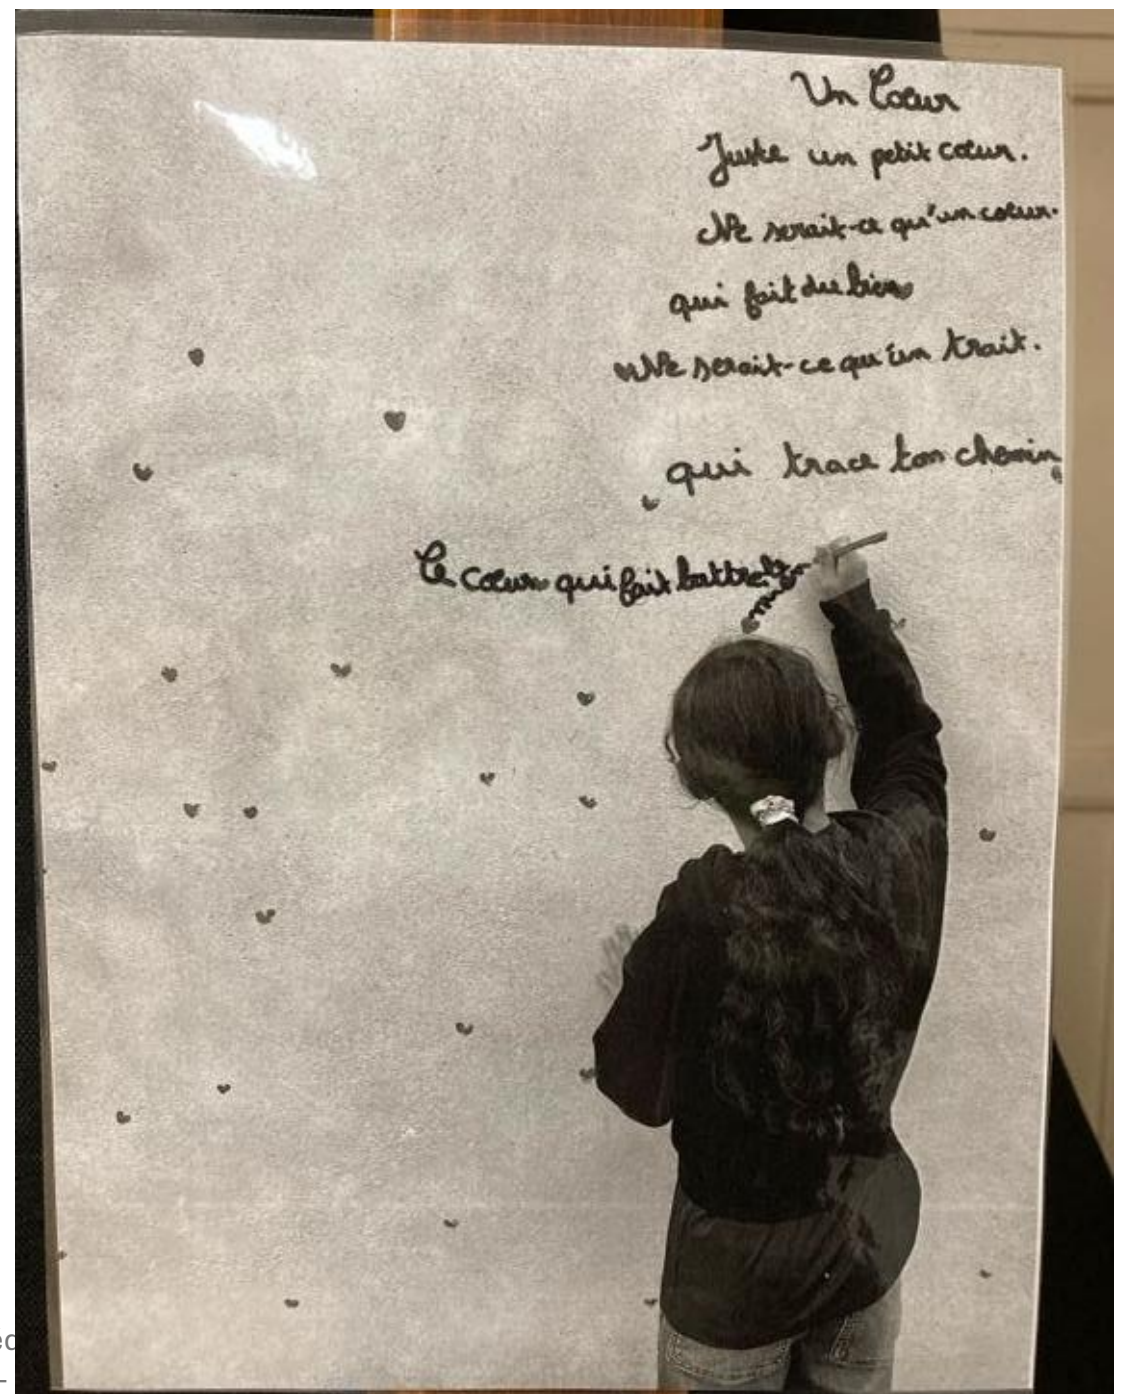 Un Coeur
Juste un petit cœur.
Ne serait-ce qu'un coeur.
qui fait du bien
Ne serait-ce qu'un trait.
qui trace ton chemin
Ce cœur qui fait battre